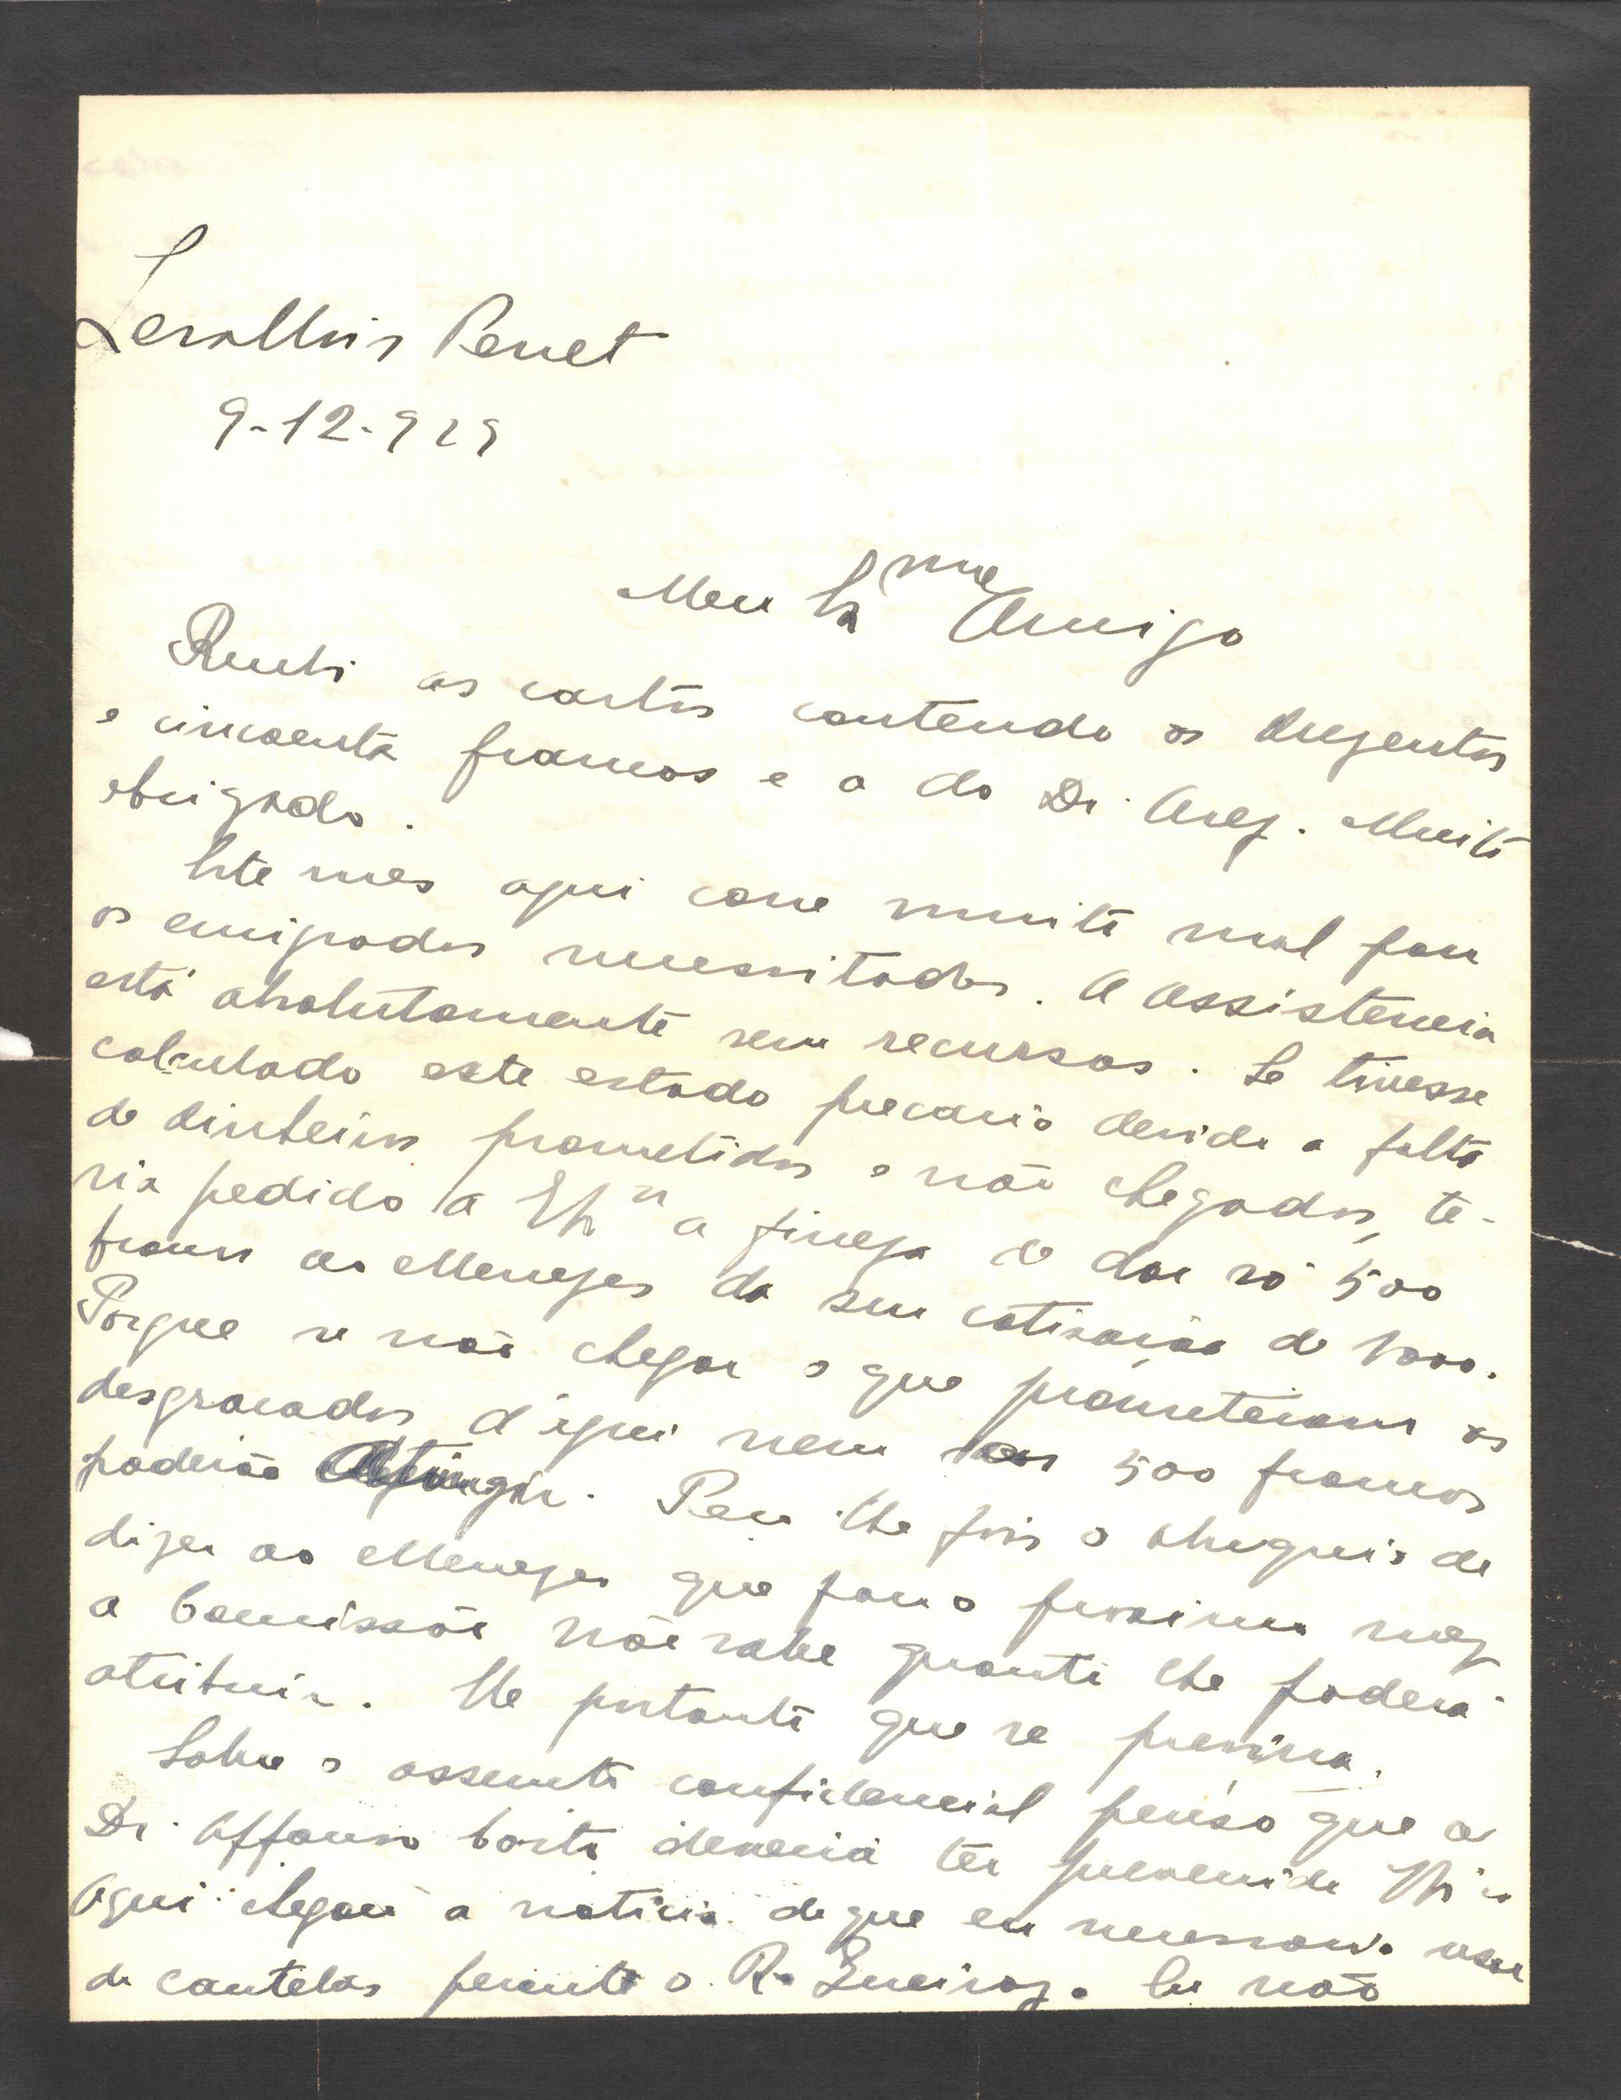 Levallois Perret
9-12-929
Meu Exmo Amigo
Recebi as cartas contendo os duzentos
e cincoenta francos e a do Dr. Arez. Muito
obrigado.
Este mes aqui corre muito mal para
os emigrados necessitados. A Assistencia
está absolutamente sem recursos. Se tivesse
calculado este estado precario devido a falta
de dinheiros prometidos e não chegados, te-
ria pedido a a fineza de dar só 500
francos ao Menezes da sua cotisação de 1000.
Porque se não chegar o que prometeram os
desgraçados d'aqui nem os 500 francos
poderão atingir. Peço lhe pois o obsequio de
dizer ao Menezes que para o proximo mez
a Comissão não sabe quanto lhe poderá
atribuir. Elle portanto que se previna.
Sobre o assumto confidencial penso que o
Dr. Affonso Costa deveria ter prevenido
Aqui chegou a noticia de que era necessario usar
de cautelas perante o R. Queiroz. Eu não